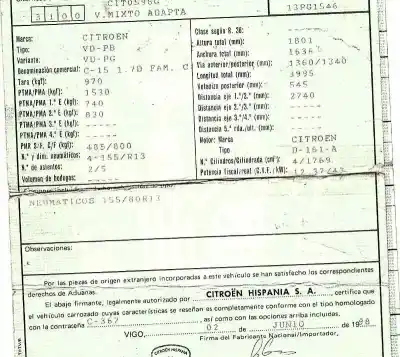 3100 V.MIXTO ADAPTA
13PG1546
Marca: CITROEN
Tipo: VD-PB
Variante: VD-PG
Denominación comercial: C-15 1.7D FAM. C
Tara (kgf): 970
PTMA/PMA (kgf): 1530
PTMA/PMA 1.º E (kgf): 740
PTMA/PMA 2.º E (kgf): 830
PTMA/PMA 3.º E (kgf): -----
PTMA/PMA 4.º E (kgf): -----
PMR S/F. C/F (kgf): 485/800
N.º y dim. neumáticos: 4-155/R13
N.º de asientos: 2/5
Volumen de bodegas:
Clase según R. 36: -----
Altura total (mm): 1801
Anchura total (mm): 1636
Vía anterior/posterior (mm): 1360/1340
Longitud total (mm): 3995
Voladizo posterior (mm): 545
Distancia eje 1.º/2.º (mm): 2740
Distancia eje 2.º/3.º (mm): -----
Distancia eje 3.º/4.º (mm): -----
Distancia 5.ª rda./últ. (mm): -----
Motor: Marca CITROEN
Tipo D-161-A
N.º Cilindros/Cilindrada (cm³): 4/1769
Potencia fiscal/real (C.V.F./kW): 12,37/43
NEUMATICOS 155/80R13
Observaciones:
Por las piezas de origen extranjero incorporadas a este vehículo se han satisfecho los correspondientes
derechos de Aduanas.
El abajo firmante, legalmente autorizado por CITROËN HISPANIA S. A. certifica que
el vehículo carrozado cuyas características se reseñan es completamente conforme con el tipo homologado
con la contraseña C-367, así como con las opciones arriba incluidas.
VIGO, 02 de JUNIO de 1988
Firma del Fabricante Nacional/Importador,
CITROËN HISPANIA